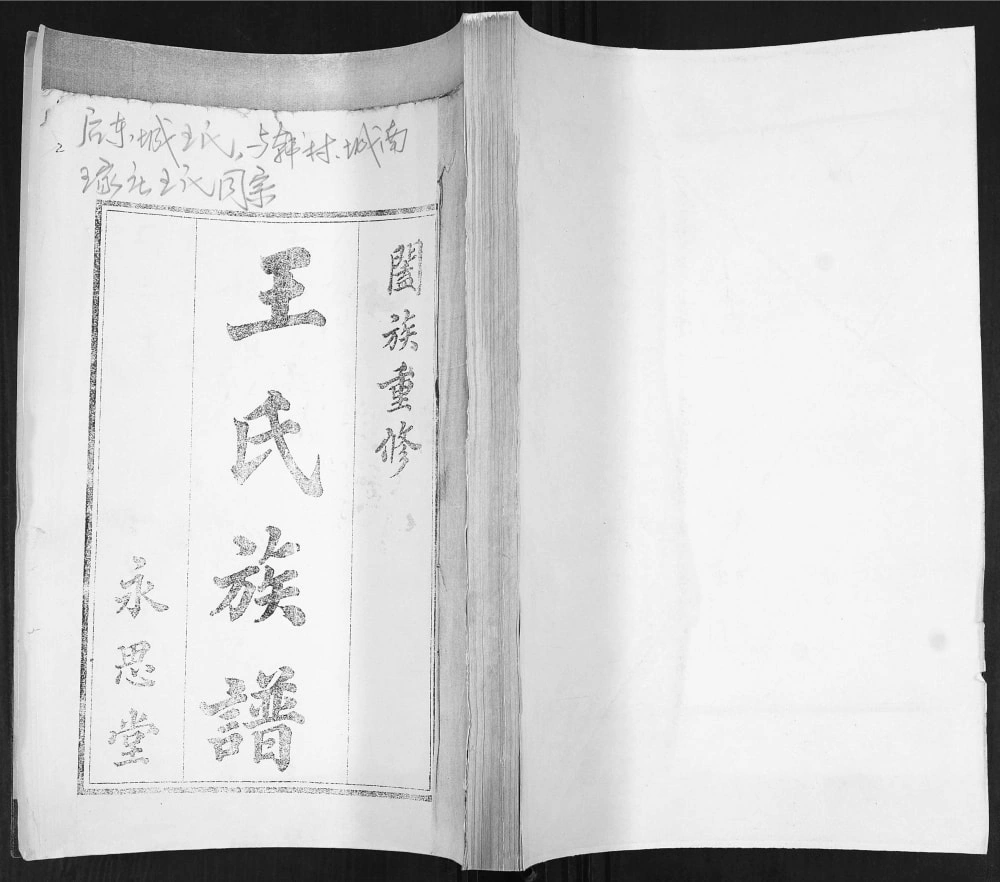 后东城王氏，与韩村、城南
王家社王氏同宗
闔族重修
王氏族譜
永思堂